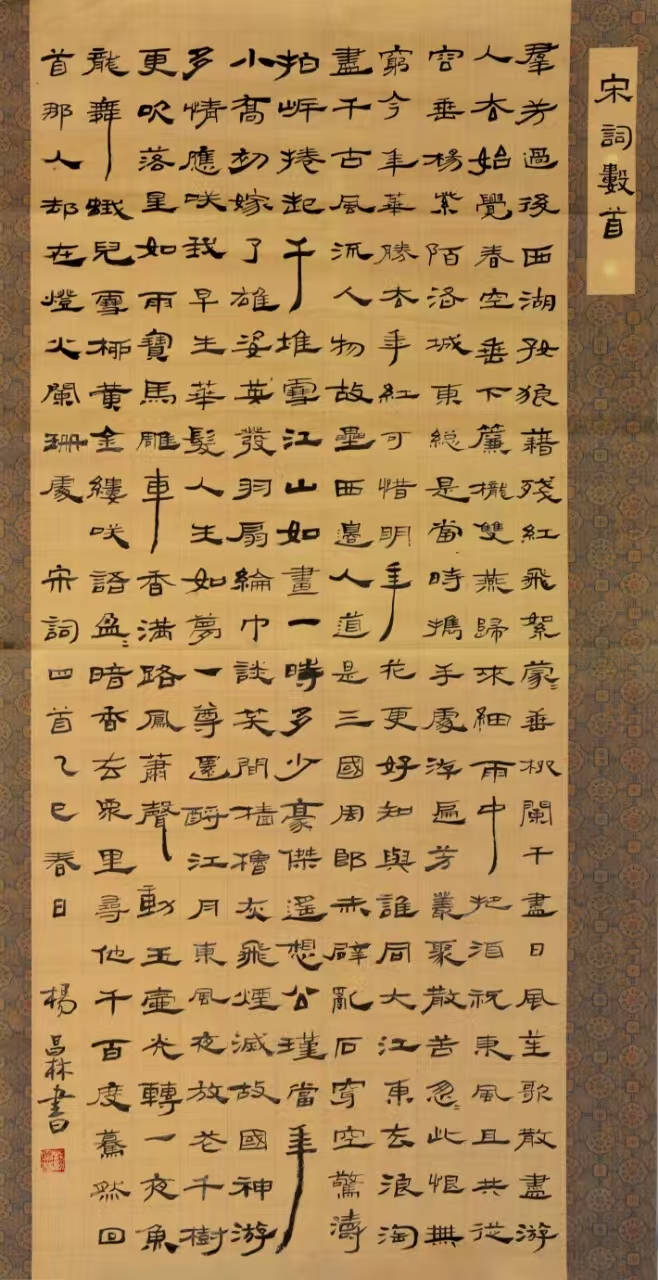 宋詞數首
羣芳過後西湖好狼藉殘紅飛絮蒙〻垂柳闌干盡日風笙歌散盡游
人去始覺春空垂下簾櫳雙燕歸來細雨中把酒祝東風且共從
容垂楊紫陌洛城東總是當時攜手處游遍芳叢聚散苦忽〻此恨無
窮今年華勝去年紅可惜明年花更好知與誰同大江東去浪淘
盡千古風流人物故壘西邊人道是三國周郎赤壁亂石穿空驚濤
拍岸捲起千堆雪江山如畫一時多少豪傑遙想公瑾當年
小喬初嫁了雄姿英發羽扇綸巾談笑間檣櫓灰飛煙滅故國神游
多情應笑我早生華髮人生如夢一尊還酹江月東風夜放花千樹
更吹落星如雨寶馬雕車香滿路鳳簫聲動玉壺光轉一夜魚
龍舞蛾兒雪柳黃金縷笑語盈〻暗香去眾里尋他千百度驀然回
首那人却在燈火闌珊處 宋詞四首乙巳春日 楊昌林書